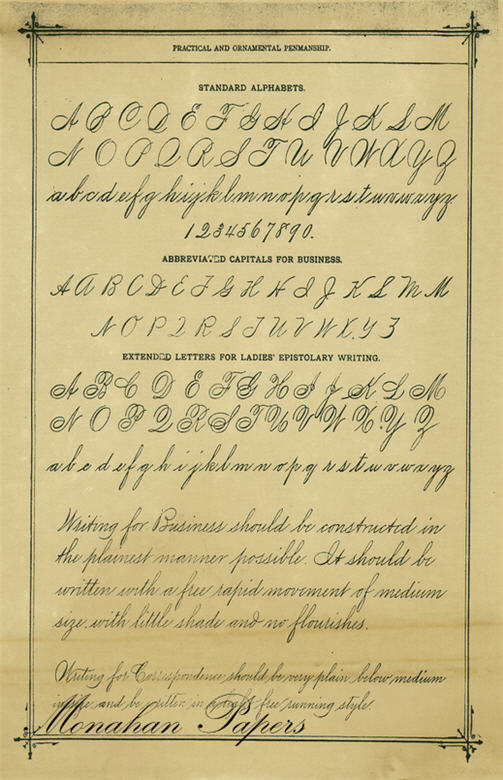 PRACTICAL AND ORNAMENTAL PENMANSHIP.
STANDARD ALPHABETS.
A B C D E F G H I J K L M
N O P Q R S T U V W X Y Z
a b c d e f g h i j k l m n o p q r s t u v w x y z
1234567890.
ABBREVIATED CAPITALS FOR BUSINESS.
A A B C D E F G H H I J K L M M
N O P Q R S T U V W X Y Z
EXTENDED LETTERS FOR LADIES' EPISTOLARY WRITING.
A B C D E F G H I J K L M
N O P Q R S T U V W X Y Z
a b c d e f g h i j k l m n o p q r s t u v w x y z
Writing for Business should be constructed in
the plainest manner possible. It should be
written with a free rapid movement of medium
size, with little shade and no flourishes.
Writing for Correspondence should be very plain below medium
in size and be written in a light free running style.
Monahan Papers